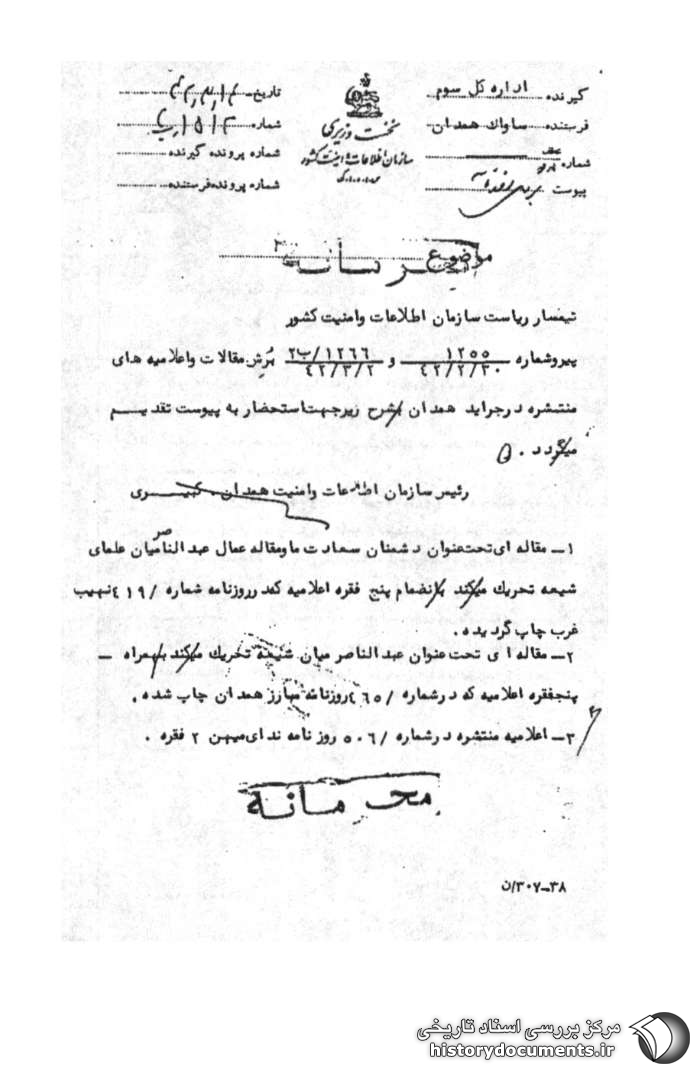 گیرنده اداره کل سوم
فرستنده ساواك همدان
شماره
پیوست
نخست وزیری
سازمان اطلاعات و امنیت کشور
تاریخ
شماره
شماره پرونده گیرنده
شماره پرونده فرستنده
موضوع
تیمسار ریاست سازمان اطلاعات وامنیت کشور
پیروشماره ۱۲۵۵ / ۴۲/۲/۳۰ و ۱۲۶۶/ب۲ / ۴۲/۳/۲ برش مقالات واعلامیه های
منتشره درجراید همدان بشرح زیرجهت استحضار به پیوست تقدیم
میگردد.
رئیس سازمان اطلاعات وامنیت همدان .
۱ــ مقاله ای تحت عنوان دشمنان سعادت ما ومقاله عمال عبدالناصر میان علمای
شیعه تحریك میکند بانضمام پنج فقره اعلامیه که درروزنامه شماره /۴۱۹ نهیب
غرب چاپ گردیده .
۲ــ مقاله ای تحت عنوان عبدالناصر میان شیعه تحریك میکند بهمراه ــ
پنجفقره اعلامیه که درشماره /۴۶۵ روزنامه مبارز همدان چاپ شده .
۳ــ اعلامیه منتشره درشماره /۵۰۶ روزنامه ندای میهن ۲ فقره .
محرمانه
۳۰۷-۳۸/ن
مرکز بررسی اسناد تاریخی
historydocuments.ir